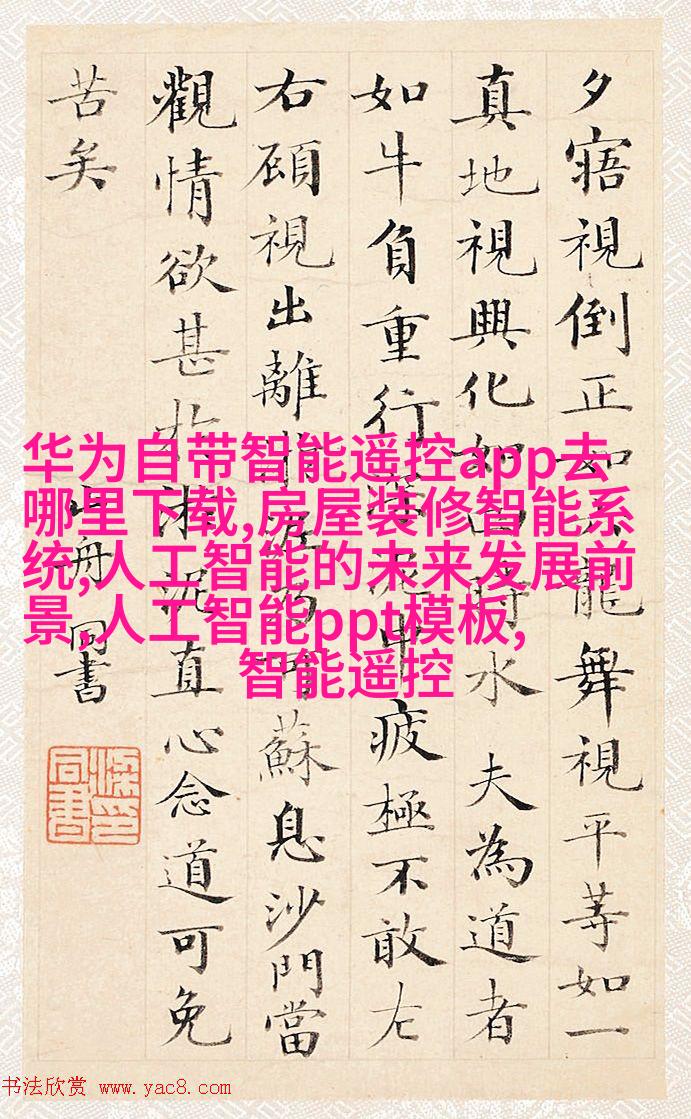 夕寤視倒正如龍舞視平等如一
真地視興化如時水 夫為道者
如牛負重行泥中疲極不敢左
右顧視出離可蘇息沙門當
觀情欲甚於泥直心念道可免
苦矣
山舟 同書
梁印
同書
华为自带智能遥控app去
哪里下载,房屋装修智能系
统,人工智能的未来发展前
景,人工智能ppt模板,
智能遥控
书法欣赏 www.yac8.com